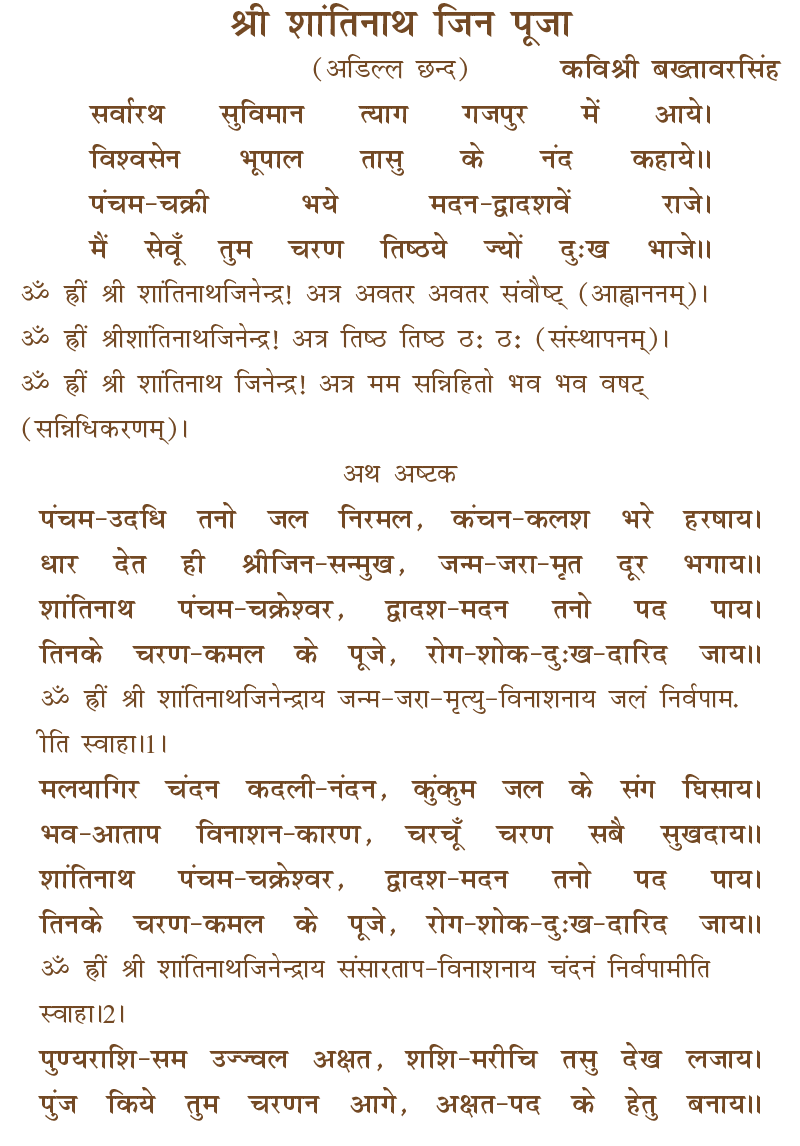 श्री शांतिनाथ जिन पूजा
(अडिल्ल छन्द) कविश्री बख्तावरसिंह
सर्वारथ सुविमान त्याग गजपुर में आये।
विश्वसेन भूपाल तासु के नंद कहाये॥
पंचम-चक्री भये मदन-द्वादशवें राजे।
मैं सेवूँ तुम चरण तिष्ठये ज्यों दुःख भाजे॥
ॐ ह्रीं श्री शांतिनाथजिनेन्द्र! अत्र अवतर अवतर संवौष्ट् (आह्वाननम्)।
ॐ ह्रीं श्रीशांतिनाथजिनेन्द्र! अत्र तिष्ठ तिष्ठ ठ: ठ: (संस्थापनम्)।
ॐ ह्रीं श्री शांतिनाथ जिनेन्द्र! अत्र मम सन्निहितो भव भव वषट्
(सन्निधिकरणम्)।
अथ अष्टक
पंचम-उदधि तनो जल निरमल, कंचन-कलश भरे हरषाय।
धार देत ही श्रीजिन-सन्मुख, जन्म-जरा-मृत दूर भगाय॥
शांतिनाथ पंचम-चक्रेश्वर, द्वादश-मदन तनो पद पाय।
तिनके चरण-कमल के पूजे, रोग-शोक-दुःख-दारिद जाय॥
ॐ ह्रीं श्री शांतिनाथजिनेन्द्राय जन्म-जरा-मृत्यु-विनाशनाय जलं निर्वपाम.
ीति स्वाहा।1।
मलयागिर चंदन कदली-नंदन, कुंकुम जल के संग घिसाय।
भव-आताप विनाशन-कारण, चरचूँ चरण सबै सुखदाय॥
शांतिनाथ पंचम-चक्रेश्वर, द्वादश-मदन तनो पद पाय।
तिनके चरण-कमल के पूजे, रोग-शोक-दुःख-दारिद जाय॥
ॐ ह्रीं श्री शांतिनाथजिनेन्द्राय संसारताप-विनाशनाय चंदनं निर्वपामीति
स्वाहा।2।
पुण्यराशि-सम उज्ज्वल अक्षत, शशि-मरीचि तसु देख लजाय।
पुंज किये तुम चरणन आगे, अक्षत-पद के हेतु बनाय॥